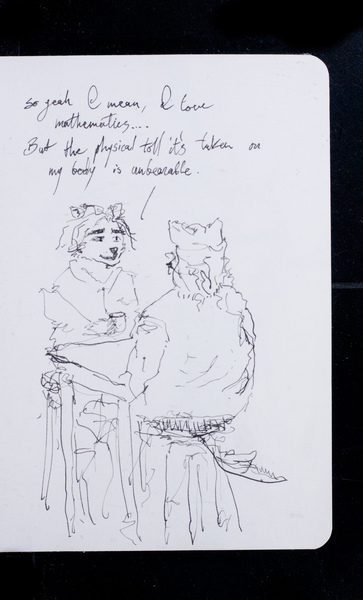 so yeah I mean, I love
mathematics....
But the physical toll it's taken on
my body is unbearable.